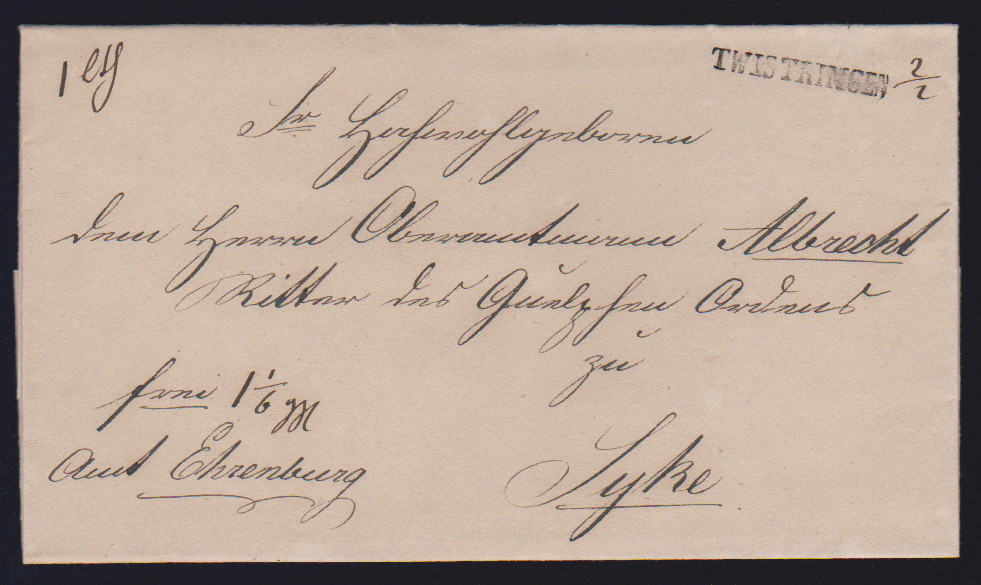 TWISTRINGEN 2/2
Sr Hochwohlgeboren
dem Herrn Oberamtmann Albrecht
Ritter des Guelphen Ordens
zu
frei 1 1/6
Amt Ehrenburg
Syke